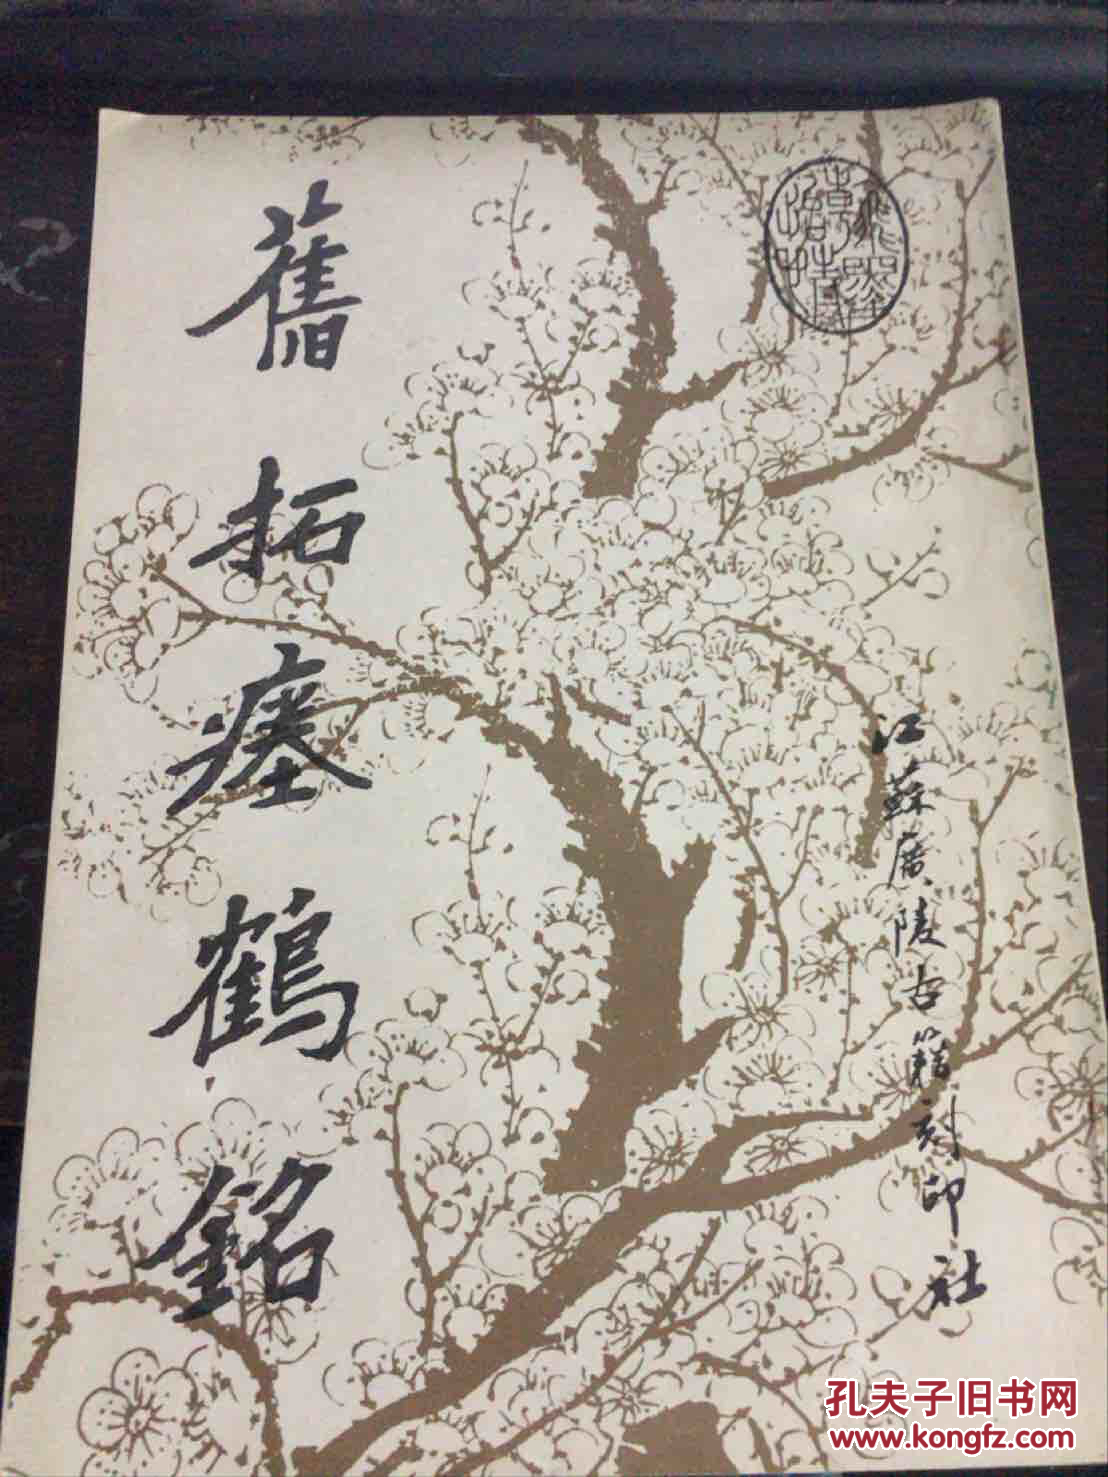 舊拓瘞鶴銘
江蘇廣陵古籍刻印社
孔夫子旧书网
www.kongfz.com